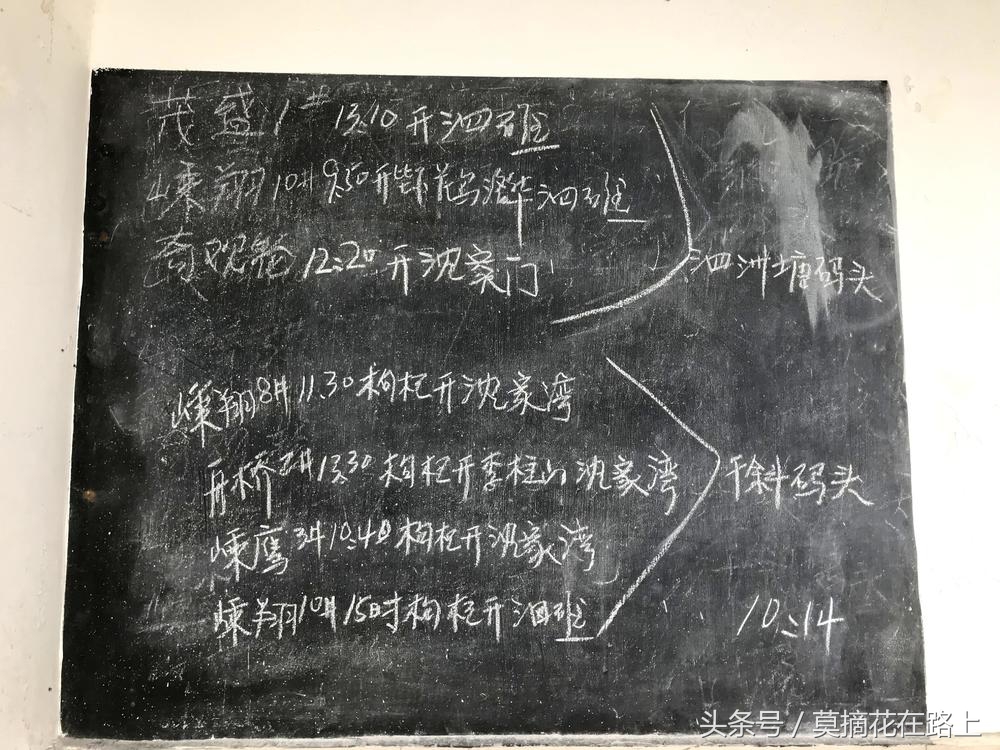 茂盛1# 13:10开泗礁
嵊翔10# 9:50开 花鸟 嵊泗礁
12:20开沈家门
泗洲塘码头
嵊翔8# 11:30枸杞开沈家湾
舟桥2# 13:30枸杞开李柱山沈家湾
干斜码头
嵊鹰3# 10:40枸杞开沈家湾
嵊翔10# 15时枸杞开泗礁
10:14
头条号 / 莫摘花在路上